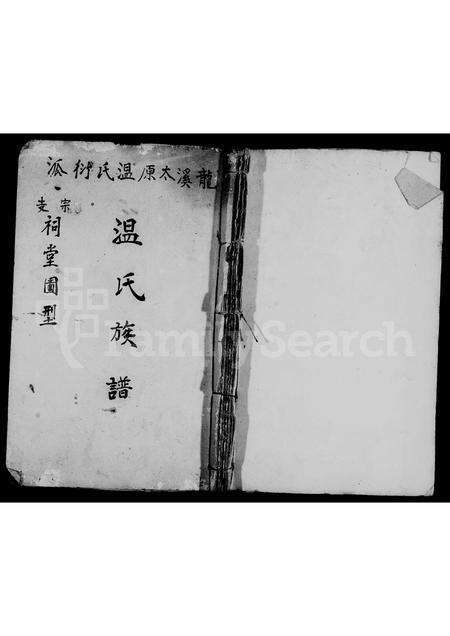 龍溪太原温氏衍派
温氏族譜
宗支
祠堂圖型
FamilySearch